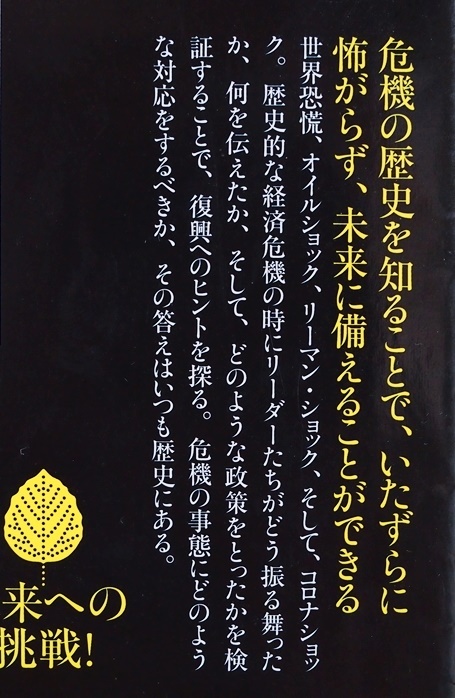 危機の歴史を知ることで、いたずらに
怖がらず、未来に備えることができる
世界恐慌、オイルショック、リーマン・ショック、そして、コロナショッ
ク。歴史的な経済危機の時にリーダーたちがどう振る舞った
か、何を伝えたか、そして、どのような政策をとったかを検
証することで、復興へのヒントを探る。危機の事態にどのよう
な対応をするべきか、その答えはいつも歴史にある。
来への
挑戦!